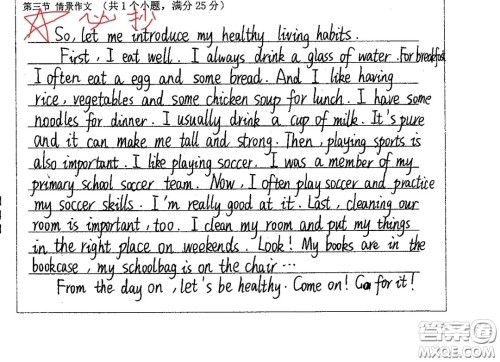 第三节 情景作文 (共1个小题，满分25分)
必抄
So, let me introduce my healthy living habits.
First, I eat well. I always drink a glass of water. For breakfast
I often eat a egg and some bread. And I like having
rice, vegetables and some chicken soup for lunch. I have some
noodles for dinner. I usually drink a cup of milk. It's pure
and it can make me tall and strong. Then, playing sports is
also important. I like playing soccer. I was a member of my
primary school soccer team. Now, I often play soccer and practice
my soccer skills. I'm really good at it. Last, cleaning our
room is important, too. I clean my room and put my things
in the right place on weekends. Look! My books are in the
bookcase, my schoolbag is on the chair ...
From the day on, let's be healthy. Come on! Go for it!
答案圈
MXQE.COM